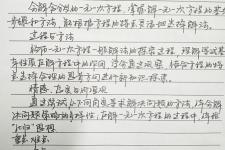 会解含分母的一元一次方程,掌握解一元一次方程的基本
步骤和方法,能根据方程的特点灵活地选择解法。
过程与方法
经历一元一次方程一般解法的探究过程,理解等式基
本性质在解方程中的作用,学会通过观察,结合方程的特
点选择合理的思考方向进行新知识探索。
情感、态度与价值观
通过尝试从不同角度寻求解决问题的方法,体会解
决问题策略的多样性;在解一元一次方程的过程中,体验
“化归”思想
重点难点